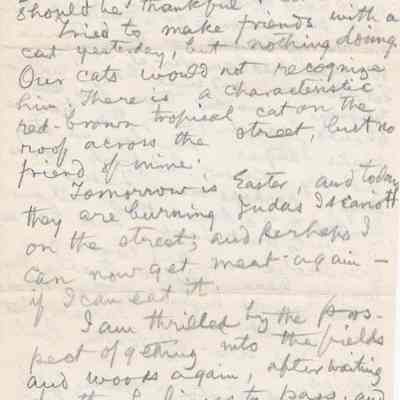 should be thankful
Tried to make friends with a
cat yesterday, but nothing doing.
Our cats would not recognize
him. There is a characteristic
red-brown tropical cat on the
roof across the street, but no
friend of mine.
Tomorrow is Easter, and today
they are burning Judas Iscariott
on the street; and Perhaps I
can now get meat again —
if I can eat it.
I am thrilled by the pros-
pect of getting into the fields
and woods again, after waiting
to pass, and